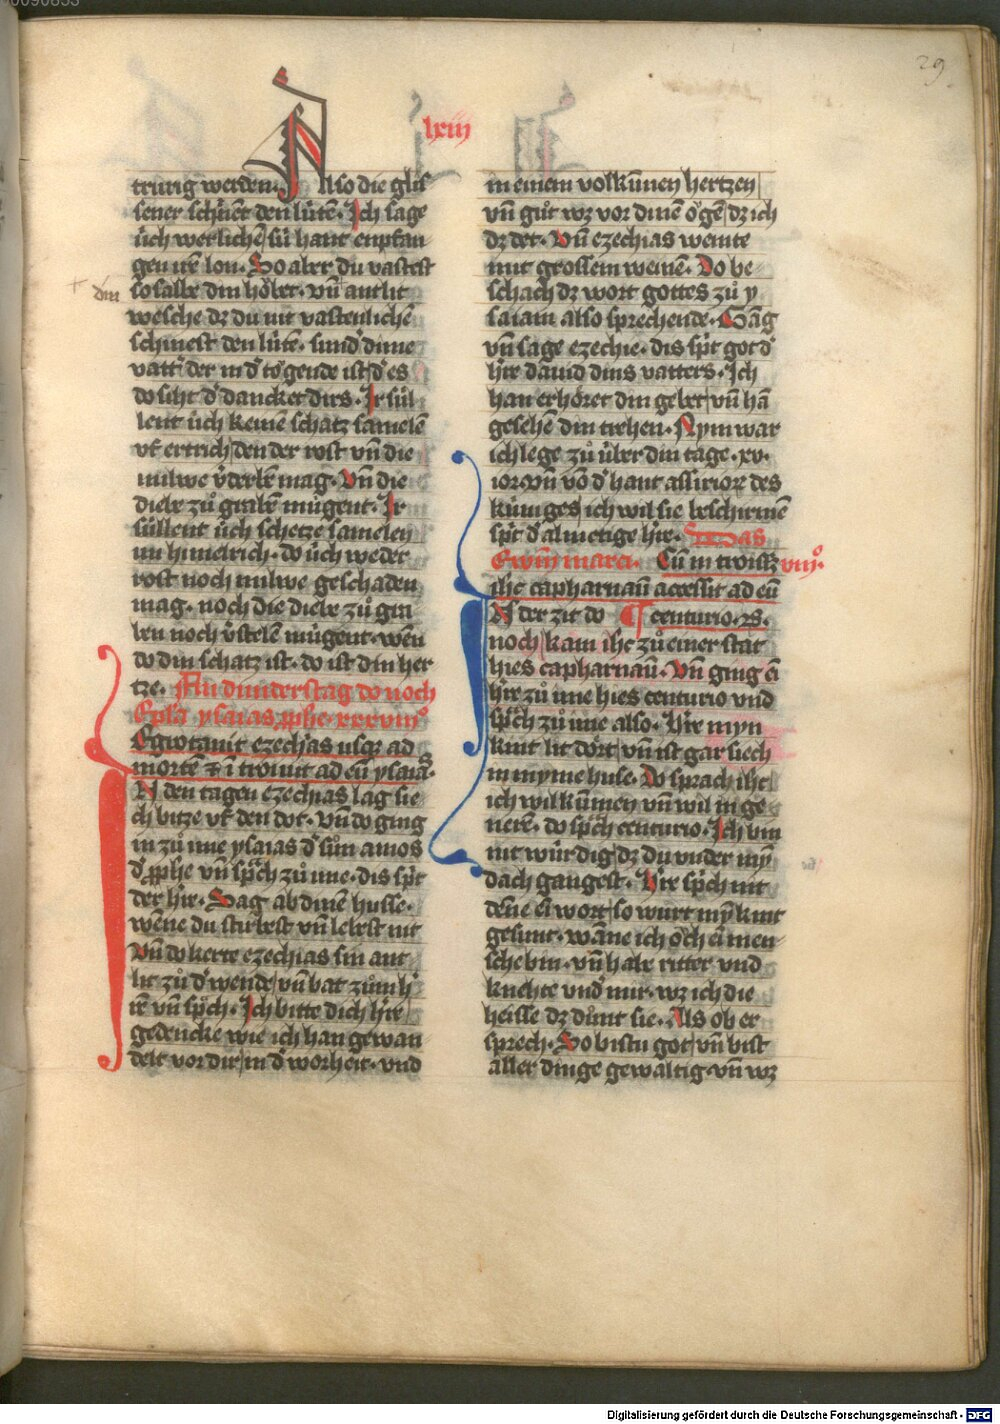 29
lxiii
trurig werden. Also die glis
sener schinent den lúten. Ich sage
úch werlichen sú hant enpfan
gen iren lon. So aber du vastest
din
so salbe din hoͤbet. vn̄ antlit
welsche dz du nit vastenlichē
schinest den lúten. sund' dime
vatt' der in d' toͮgende ist d' es
do siht d' dancket dirs. Ir súl
lent úch keinē schatz samelē
vf ertrich den der rost vn̄ die
milwe v'derbē mag. Vn̄ die
diebe zuͦ grabē múgent. Ir
súllent úch schetze samelen
im himelrich. do úch weder
rost noch milwe geschaden
mag. noch die diebe zuͦ gra
ben noch v'stelen múgent. wen
do din schatz ist. do ist din her
tze. An dunderstag do noch
Ep'la ysaias p̄phe. xxxviiiͦ
Egrotauit ezechias usqz ad
mortē ⁊ ītrouit ad eū ysaias.
IN den tagen ezechias lag sie
ch bitze vf den dot. vn̄ do ging
in zuͦ ime ysaias d' sun amos
d' p̄phe vn̄ sp̄ch zuͦ ime. dis sp̄t
der h're. Sag ab dinē husse.
wēne du stirbest vn̄ lebest nit
Vn̄ do kerte ezechias sin ant
lit zuͦ d' wende vn̄ bat zuͦm h'
rē vn̄ sp̄ch. Ich bitte dich h're
gedencke wie ich han gewan
delt vor dir in d' worheit. vnd
in einem volkumen hertzen
vn̄ guͦt wz vor dinen oͤgē dz ich
dz det. Vn̄ ezechias weinte
mit grossem weinē. Do be
schach dz wort gottes zuͦ y
saiam also sprechende. Gang
vn̄ sage ezechie. dis sp̄t got d'
h're dauid dins vatters. Ich
han erhoͤret din gebet vn̄ hā
gesehē din trehen. Nym war
ich lege zuͦ úber din tage. xv.
ior. vn̄ vō d' hant assirior des
kúniges ich wil sie beschirmē
sp̄t d' almetige h're. Das
Ewā marci. Cū introisz viiiͦ.
ihc capharnaū accessit ad eū
IN der zit do ¶ centurio. R.
noch kam ihc zuͦ einer stat
hies capharnaū. Vn̄ ging eī
h're zuͦ ime hies centurio vnd
sp̄ch zuͦ ime also. H're myn
kint lit doͤrt vn̄ ist gar siech
in myme huse. Do sprach ihc
ich wil kūmen vn̄ wil in ge
neren. do sp̄ch centurio. Ich bin
nit wúrdig dz du vnder my̅
dach gangest. H're sp̄ch nit
dēne eī wort so wurt my̅ kint
gesunt. wāne ich oͤch eī men
sche bin. vn̄ habe ritter vnd
knehte vnd' mir. wz ich die
heisse dz duͦnt sie. Als ob er
sprech. So bistu got vn̄ bist
aller dinge gewaltig vn̄ wz
Digitalisierung gefördert durch die Deutsche Forschungsgemeinschaft - DFG